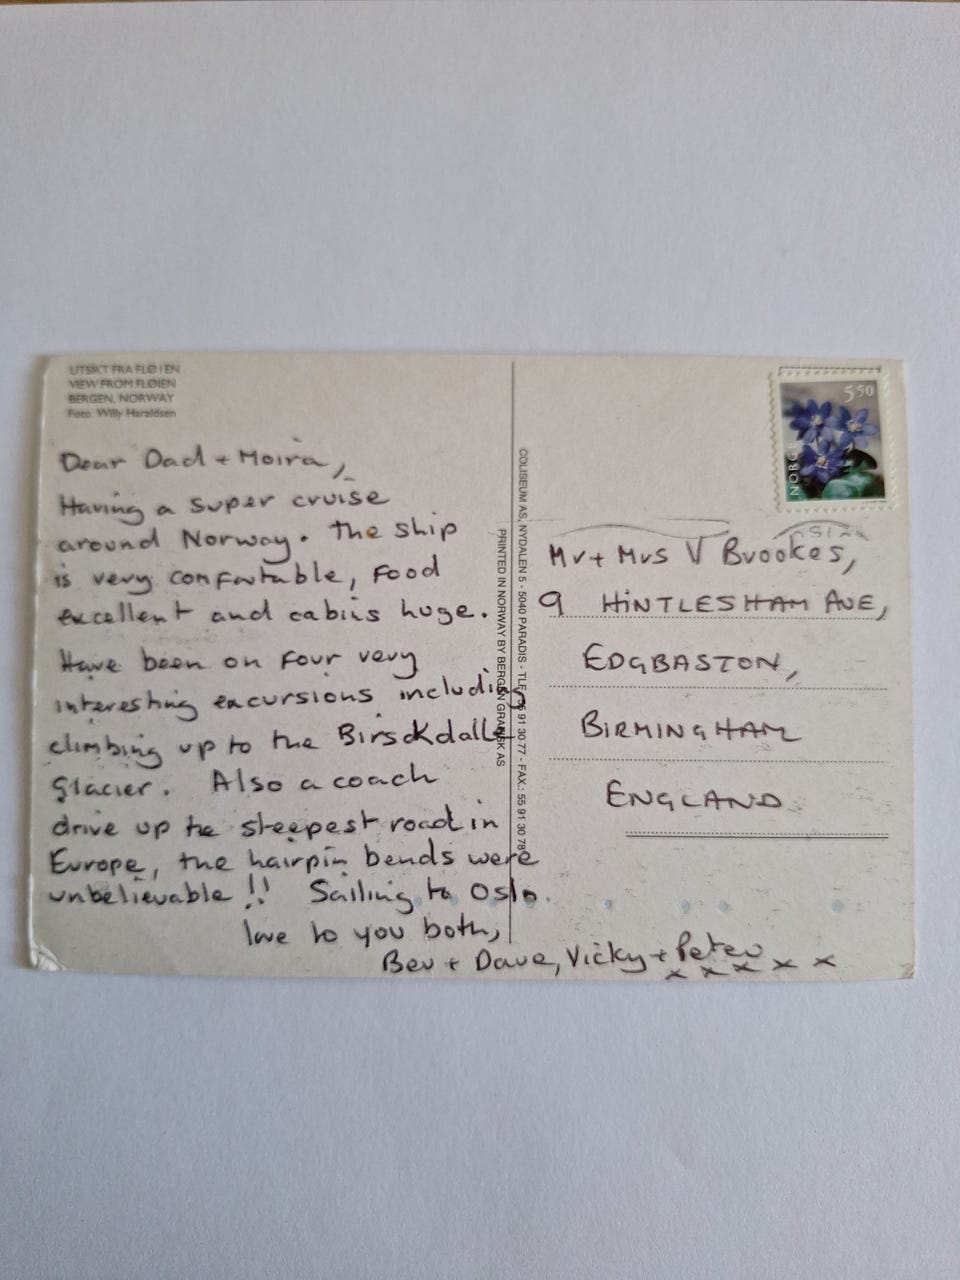 UTSIKT FRA FLØIEN
VIEW FROM FLØIEN
BERGEN, NORWAY
Foto: Willy Haraldsen
Dear Dad + Moira,
Having a super cruise
around Norway. The ship
is very comfortable, food
excellent and cabins huge.
Have been on four very
interesting excursions including
climbing up to the Birsckdalle
glacier. Also a coach
drive up the steepest road in
Europe, the hairpin bends were
unbelievable !! Sailing to Oslo.
love to you both,
Bev + Dave, Vicky + Peter
x x x x x
PRINTED IN NORWAY BY BERGEN GRAFISK AS
COLISEUM AS, NYDALEN 5 - 5040 PARADIS - TLF. 55 91 30 77 - FAX.: 55 91 30 78
NORGE
5 50
Mr + Mrs V Brookes,
9 HINTLESHAM AVE,
EDGBASTON,
BIRMINGHAM
ENGLAND